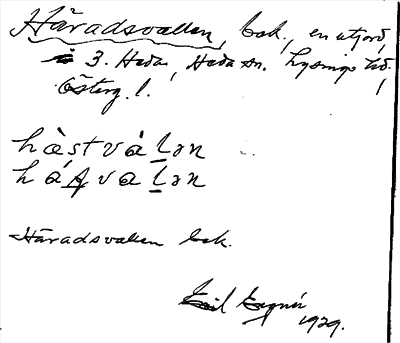 Häradsvallen, bek., en utjord
i 3. Heda, Heda sn. Lysings hd.
Österg. l.
hàstvàlən
háṣvalən
Häradsvallen bek.
1929.